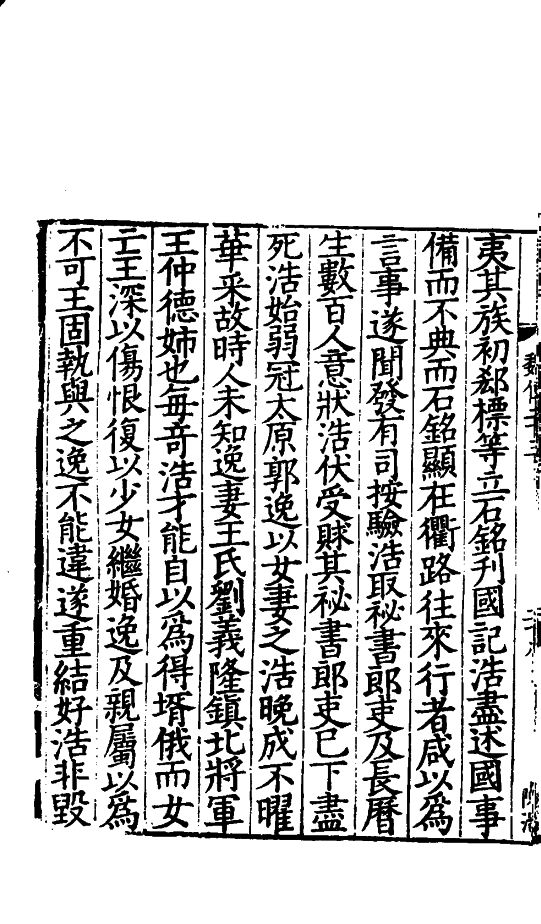 夷其族初郄標等立石銘刊國記浩盡述國事
備而不典而石銘顯在衢路往來行者咸以爲
言事遂聞發有司按驗浩取祕書郎吏及長曆
生數百人意狀浩伏受賕其祕書郎吏已下盡
死浩始弱冠太原郭逸以女妻之浩晚成不曜
華采故時人未知逸妻王氏劉義隆鎮北將軍
王仲德姉也每竒浩才能自以爲得壻俄而女
亡王深以傷恨復以少女繼婚逸及親屬以爲
不可王固執與之逸不能違遂重結好浩非毀